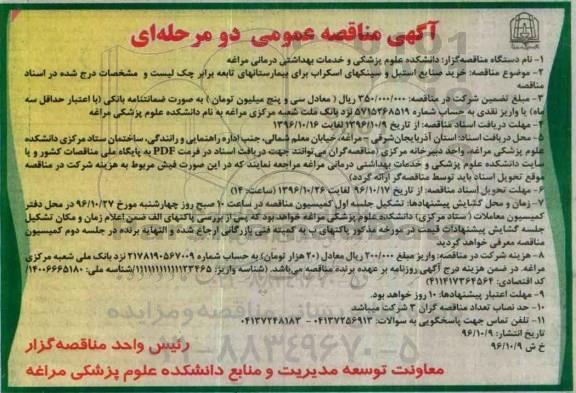 آگهی مناقصه عمومی دو مرحله‌ای
۱- نام دستگاه مناقصه‌گزار: دانشکده علوم پزشکی و خدمات بهداشتی درمانی مراغه
۲- موضوع مناقصه: خرید صنایع استیل و سینکهای اسکراب برای بیمارستانهای تابعه برابر چک لیست و مشخصات درج شده در اسناد
مناقصه
۳- مبلغ تضمین شرکت در مناقصه: ۳۵۰/۰۰۰/۰۰۰ ریال ( معادل سی و پنج میلیون تومان ) به صورت ضمانتنامه بانکی (با اعتبار حداقل سه
ماه) یا واریز نقدی به حساب شماره ۵۷۱۵۲۶۸۵۱۹ نزد بانک ملت شعبه مرکزی مراغه به نام دانشکده علوم پزشکی مراغه
۴- مهلت دریافت اسناد مناقصه: از تاریخ ۱۳۹۶/۱۰/۹ لغایت ۱۳۹۶/۱۰/۱۶
۵- محل دریافت اسناد: استان آذربایجان‌شرقی – مراغه، خیابان معلم شمالی، جنب اداره راهنمایی و رانندگی، ساختمان ستاد مرکزی دانشکده
علوم پزشکی مراغه، واحد دبیرخانه مرکزی (مناقصه‌گران می‌توانند جهت دریافت اسناد در فرمت PDF به پایگاه ملی مناقصات کشور و یا
سایت دانشکده علوم پزشکی و خدمات بهداشتی درمانی مراغه مراجعه نمایند که در این صورت فیش مربوط به هزینه شرکت در مناقصه
موقع تحویل اسناد باید توسط مناقصه‌گر ارائه گردد)
۶- مهلت تحویل اسناد مناقصه: از تاریخ ۹۶/۱۰/۱۷ لغایت ۱۳۹۶/۱۰/۲۶ (ساعت: ۱۴)
۷- زمان و محل گشایش پیشنهادها: تشکیل جلسه اول کمیسیون مناقصه در ساعت ۱۰ صبح روز چهارشنبه مورخ ۹۶/۱۰/۲۷ در محل دفتر
کمیسیون معاملات ( ستاد مرکزی) دانشکده علوم پزشکی مراغه خواهد بود که پس از بررسی پاکتهای الف ضمن اعلام زمان و مکان تشکیل
جلسه گشایش پیشنهادات قیمت در مورخه مذکور پاکتهای ب به کمیته فنی بازرگانی ارجاع شده و النهایه برنده در جلسه دوم کمیسیون
مناقصه معرفی خواهد گردید
۸- هزینه شرکت در مناقصه: واریز مبلغ ۲۰۰/۰۰۰ ریال معادل (۲۰ هزار تومان) به حساب شماره ۲۱۷۸۱۹۰۵۶۷۰۰۹ نزد بانک ملی شعبه مرکزی
مراغه. در ضمن هزینه درج آگهی روزنامه بر عهده برنده مناقصه می‌باشد. (شناسه واریز: /شناسه ملی: ۱۴۰۰۶۶۶۵۱۸۰/
کد اقتصادی: ۴۱۱۴۱۷۳۶۴۵۶۴)
۹- مهلت اعتبار پیشنهادها: ۱۰ روز خواهد بود.
۱۰- حد نصاب تعداد مناقصه گران ۳ شرکت میباشد
۱۱- تلفن تماس جهت پاسخگویی به سوالات: ۰۴۱۳۷۲۵۶۹۱۳ - ۰۴۱۳۷۲۴۸۱۸۳
تاریخ انتشار: ۹۶/۱۰/۹
خ ش ۹۶/۱۰/۹
رئیس واحد مناقصه‌گزار
معاونت توسعه مدیریت و منابع دانشکده علوم پزشکی مراغه
۰۲۱-۸۸۳۴۹۶۷۰-۵